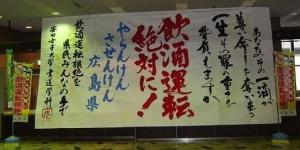 あなたのその一滴が
尊い命を奪い
一生その罪の重さを
飲酒運転
絶対に!
やらんけん
させんけん
広島県
飲酒運転根絶を
県民みんなの手で
安田女子大学 書道学科